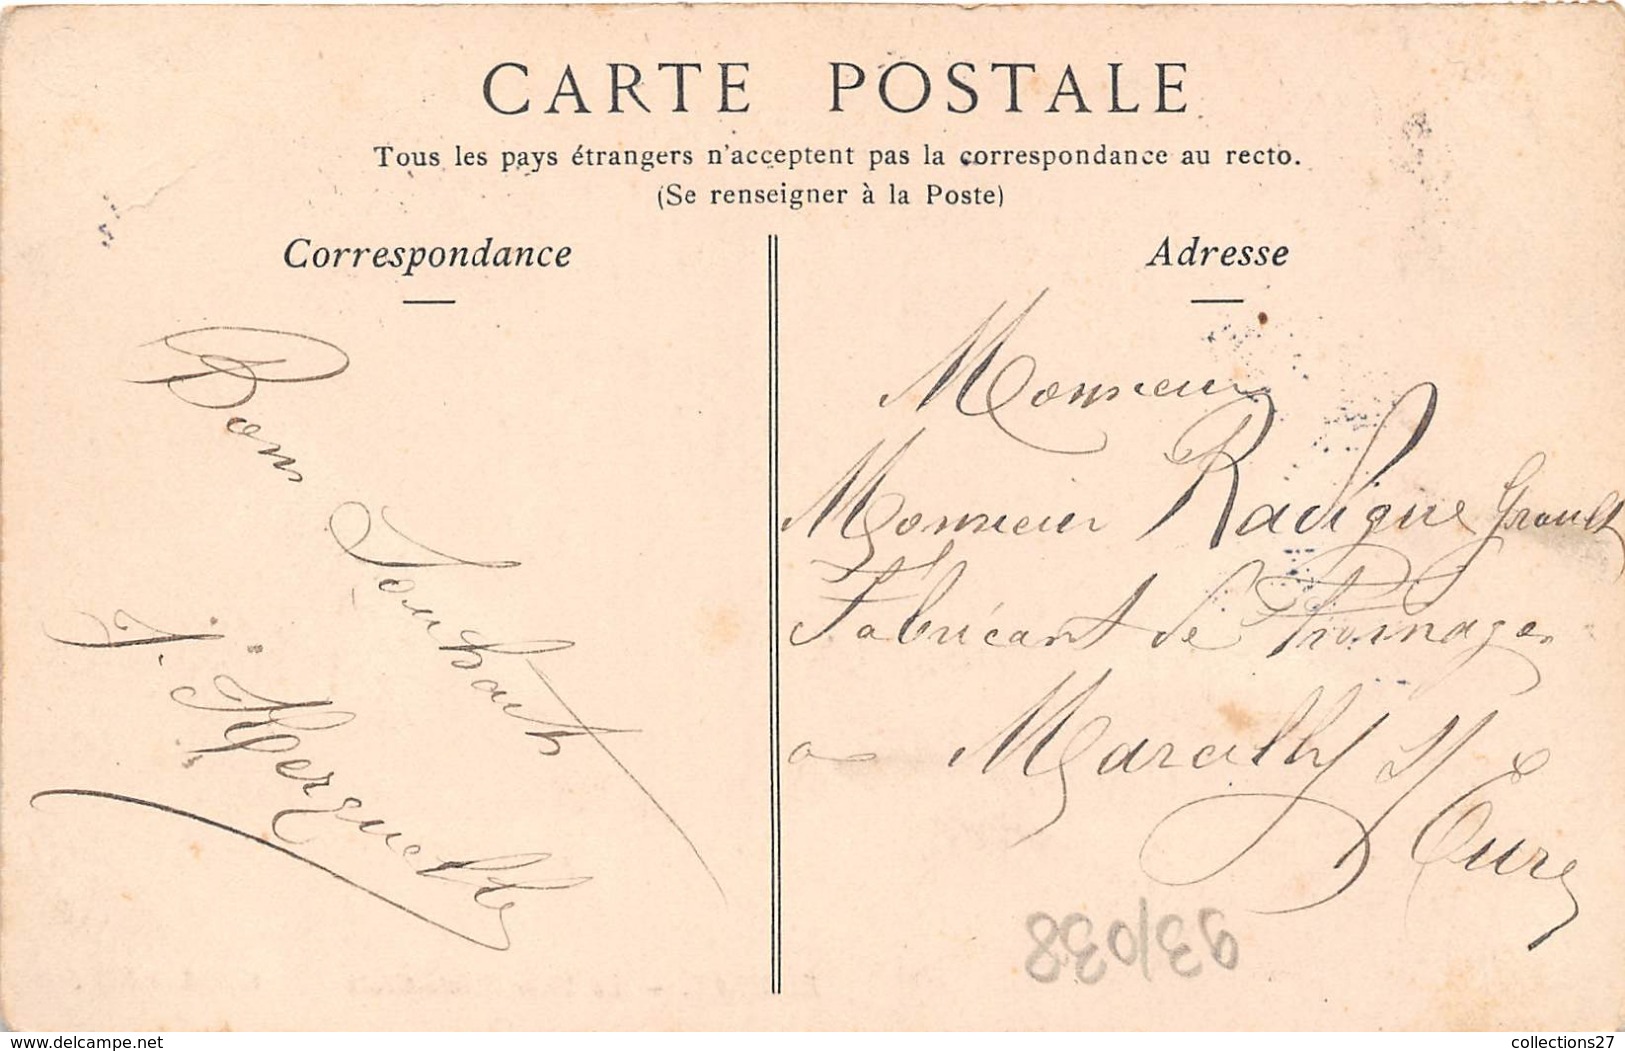 CARTE POSTALE
Tous les pays étrangers n'acceptent pas la correspondance au recto.
(Se renseigner à la Poste)
Correspondance
Bons Souhaits
J.
Adresse
Monsieur
Monsieur Radigue Grault
Fabricant de Fromages
a Marcilly s/ Eure
93/038
delcampe.net
collections27